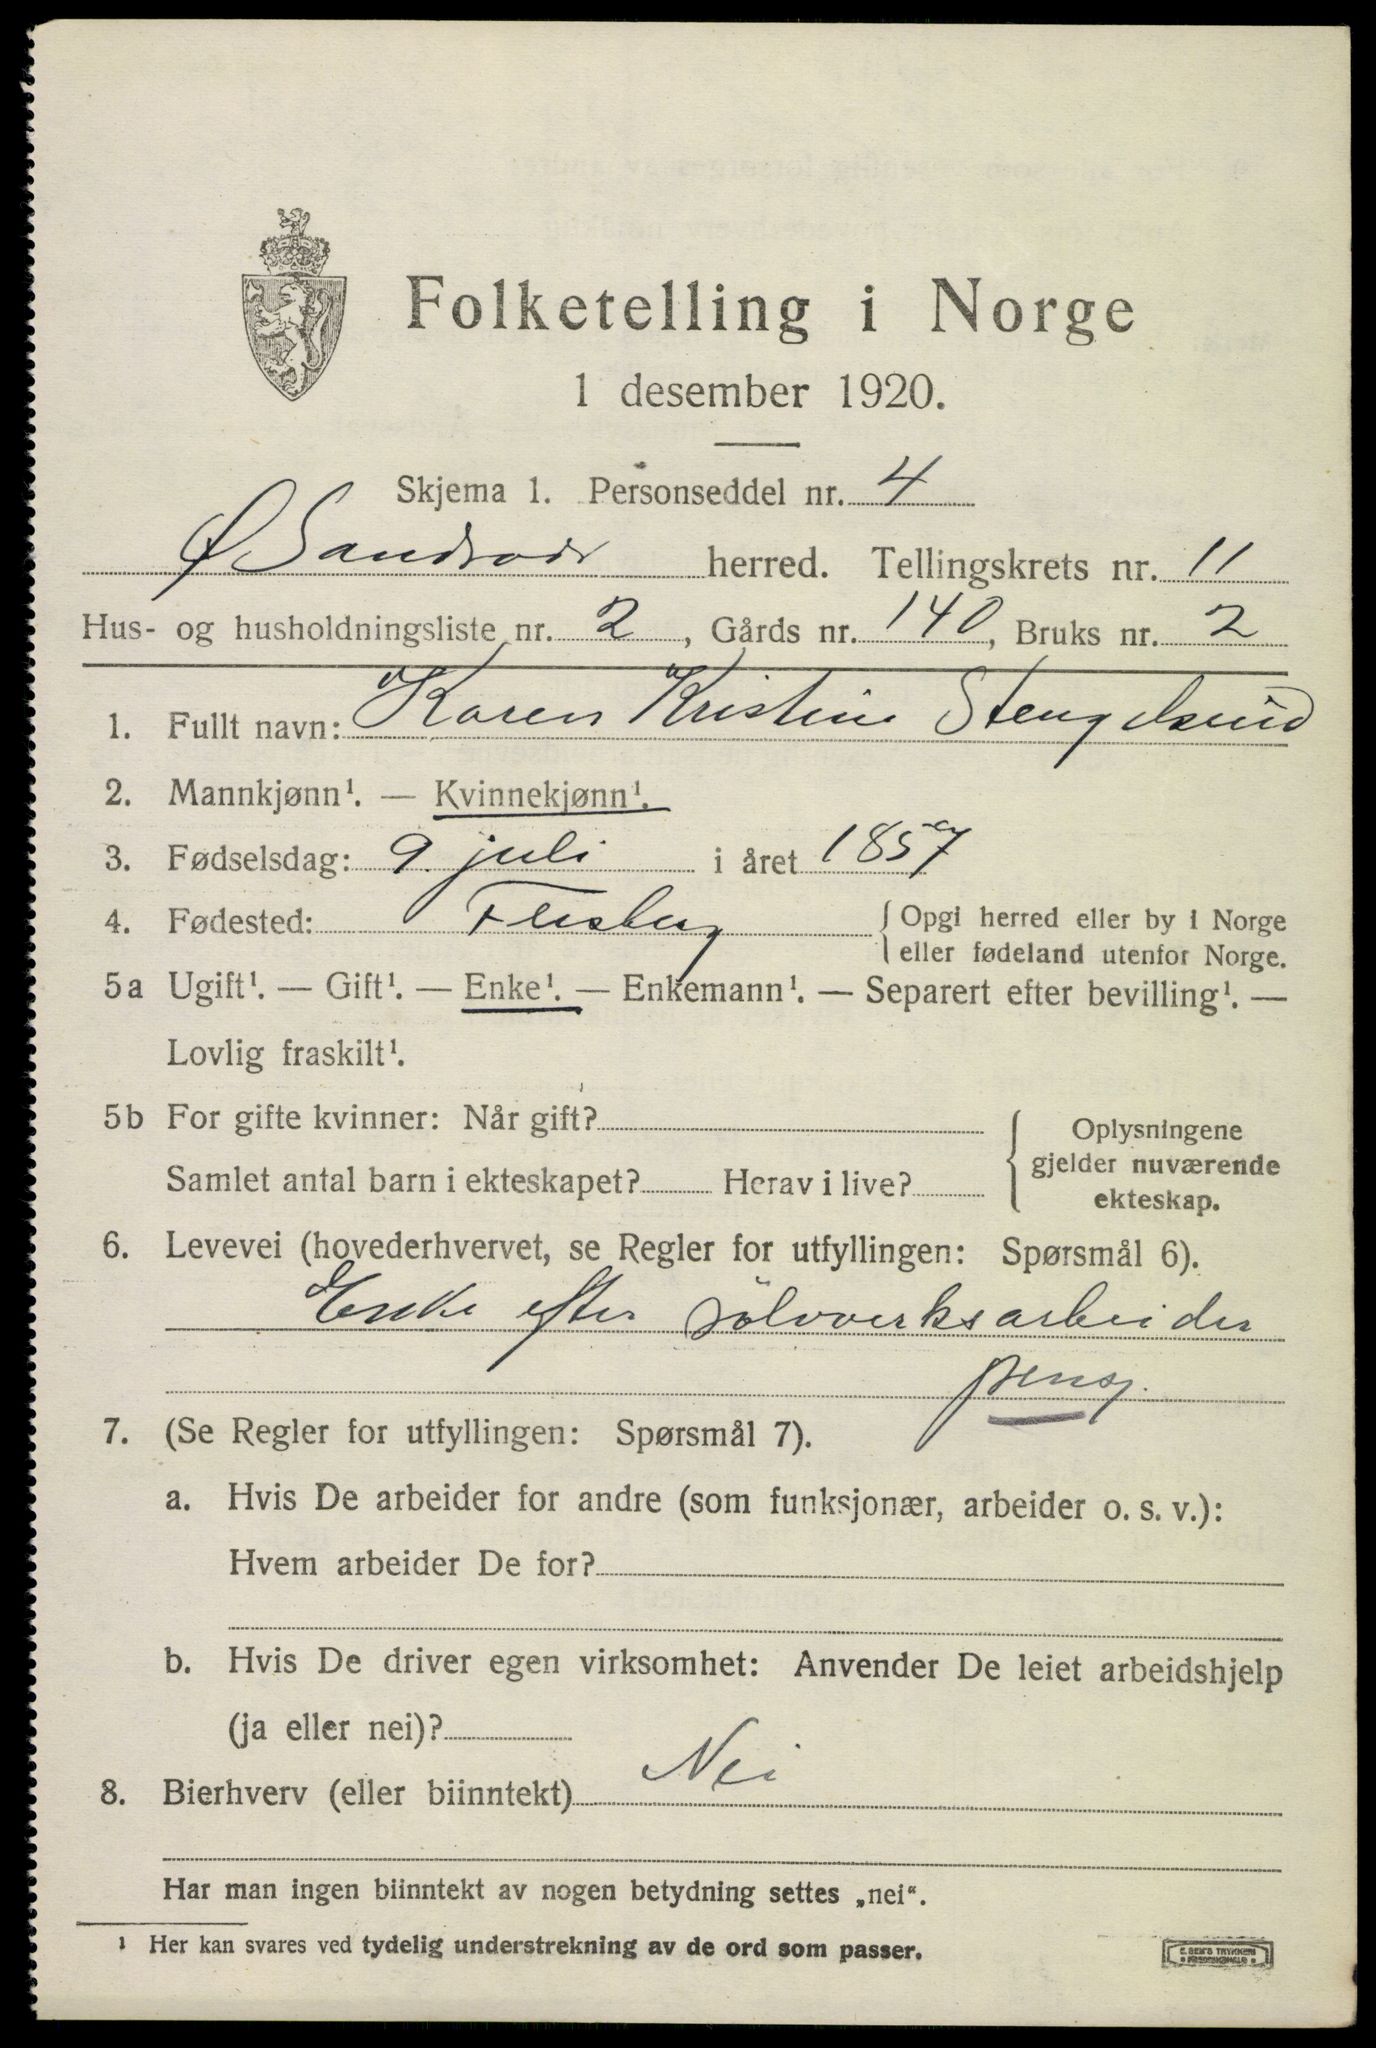 Folketelling i Norge
1 desember 1920.
Skjema 1. Personseddel nr. 4
Ø Sandsvær herred. Tellingskrets nr. 11
Hus- og husholdningsliste nr. 2, Gårds nr. 140, Bruks nr. 2
1. Fullt navn: Karen Kristine Stengelsrud
2. Mannkjønn¹. — Kvinnekjønn¹.
3. Fødselsdag: 9. juli i året 1857
4. Fødested: Flesberg { Opgi herred eller by i Norge
{ eller fødeland utenfor Norge.
5a Ugift¹. — Gift¹. — Enke¹. — Enkemann¹. — Separert efter bevilling¹. —
Lovlig fraskilt¹.
5b For gifte kvinner: Når gift?
Samlet antal barn i ekteskapet? Herav i live?
Oplysningene
gjelder nuværende
ekteskap.
6. Levevei (hovederhvervet, se Regler for utfyllingen: Spørsmål 6).
Enke efter sölvverksarbeider
pensj.
7. (Se Regler for utfyllingen: Spørsmål 7).
a. Hvis De arbeider for andre (som funksjonær, arbeider o. s. v.):
Hvem arbeider De for?
b. Hvis De driver egen virksomhet: Anvender De leiet arbeidshjelp
(ja eller nei)?
8. Bierhverv (eller biinntekt) Nei
Har man ingen biinntekt av nogen betydning settes „nei“.
¹ Her kan svares ved tydelig understrekning av de ord som passer.